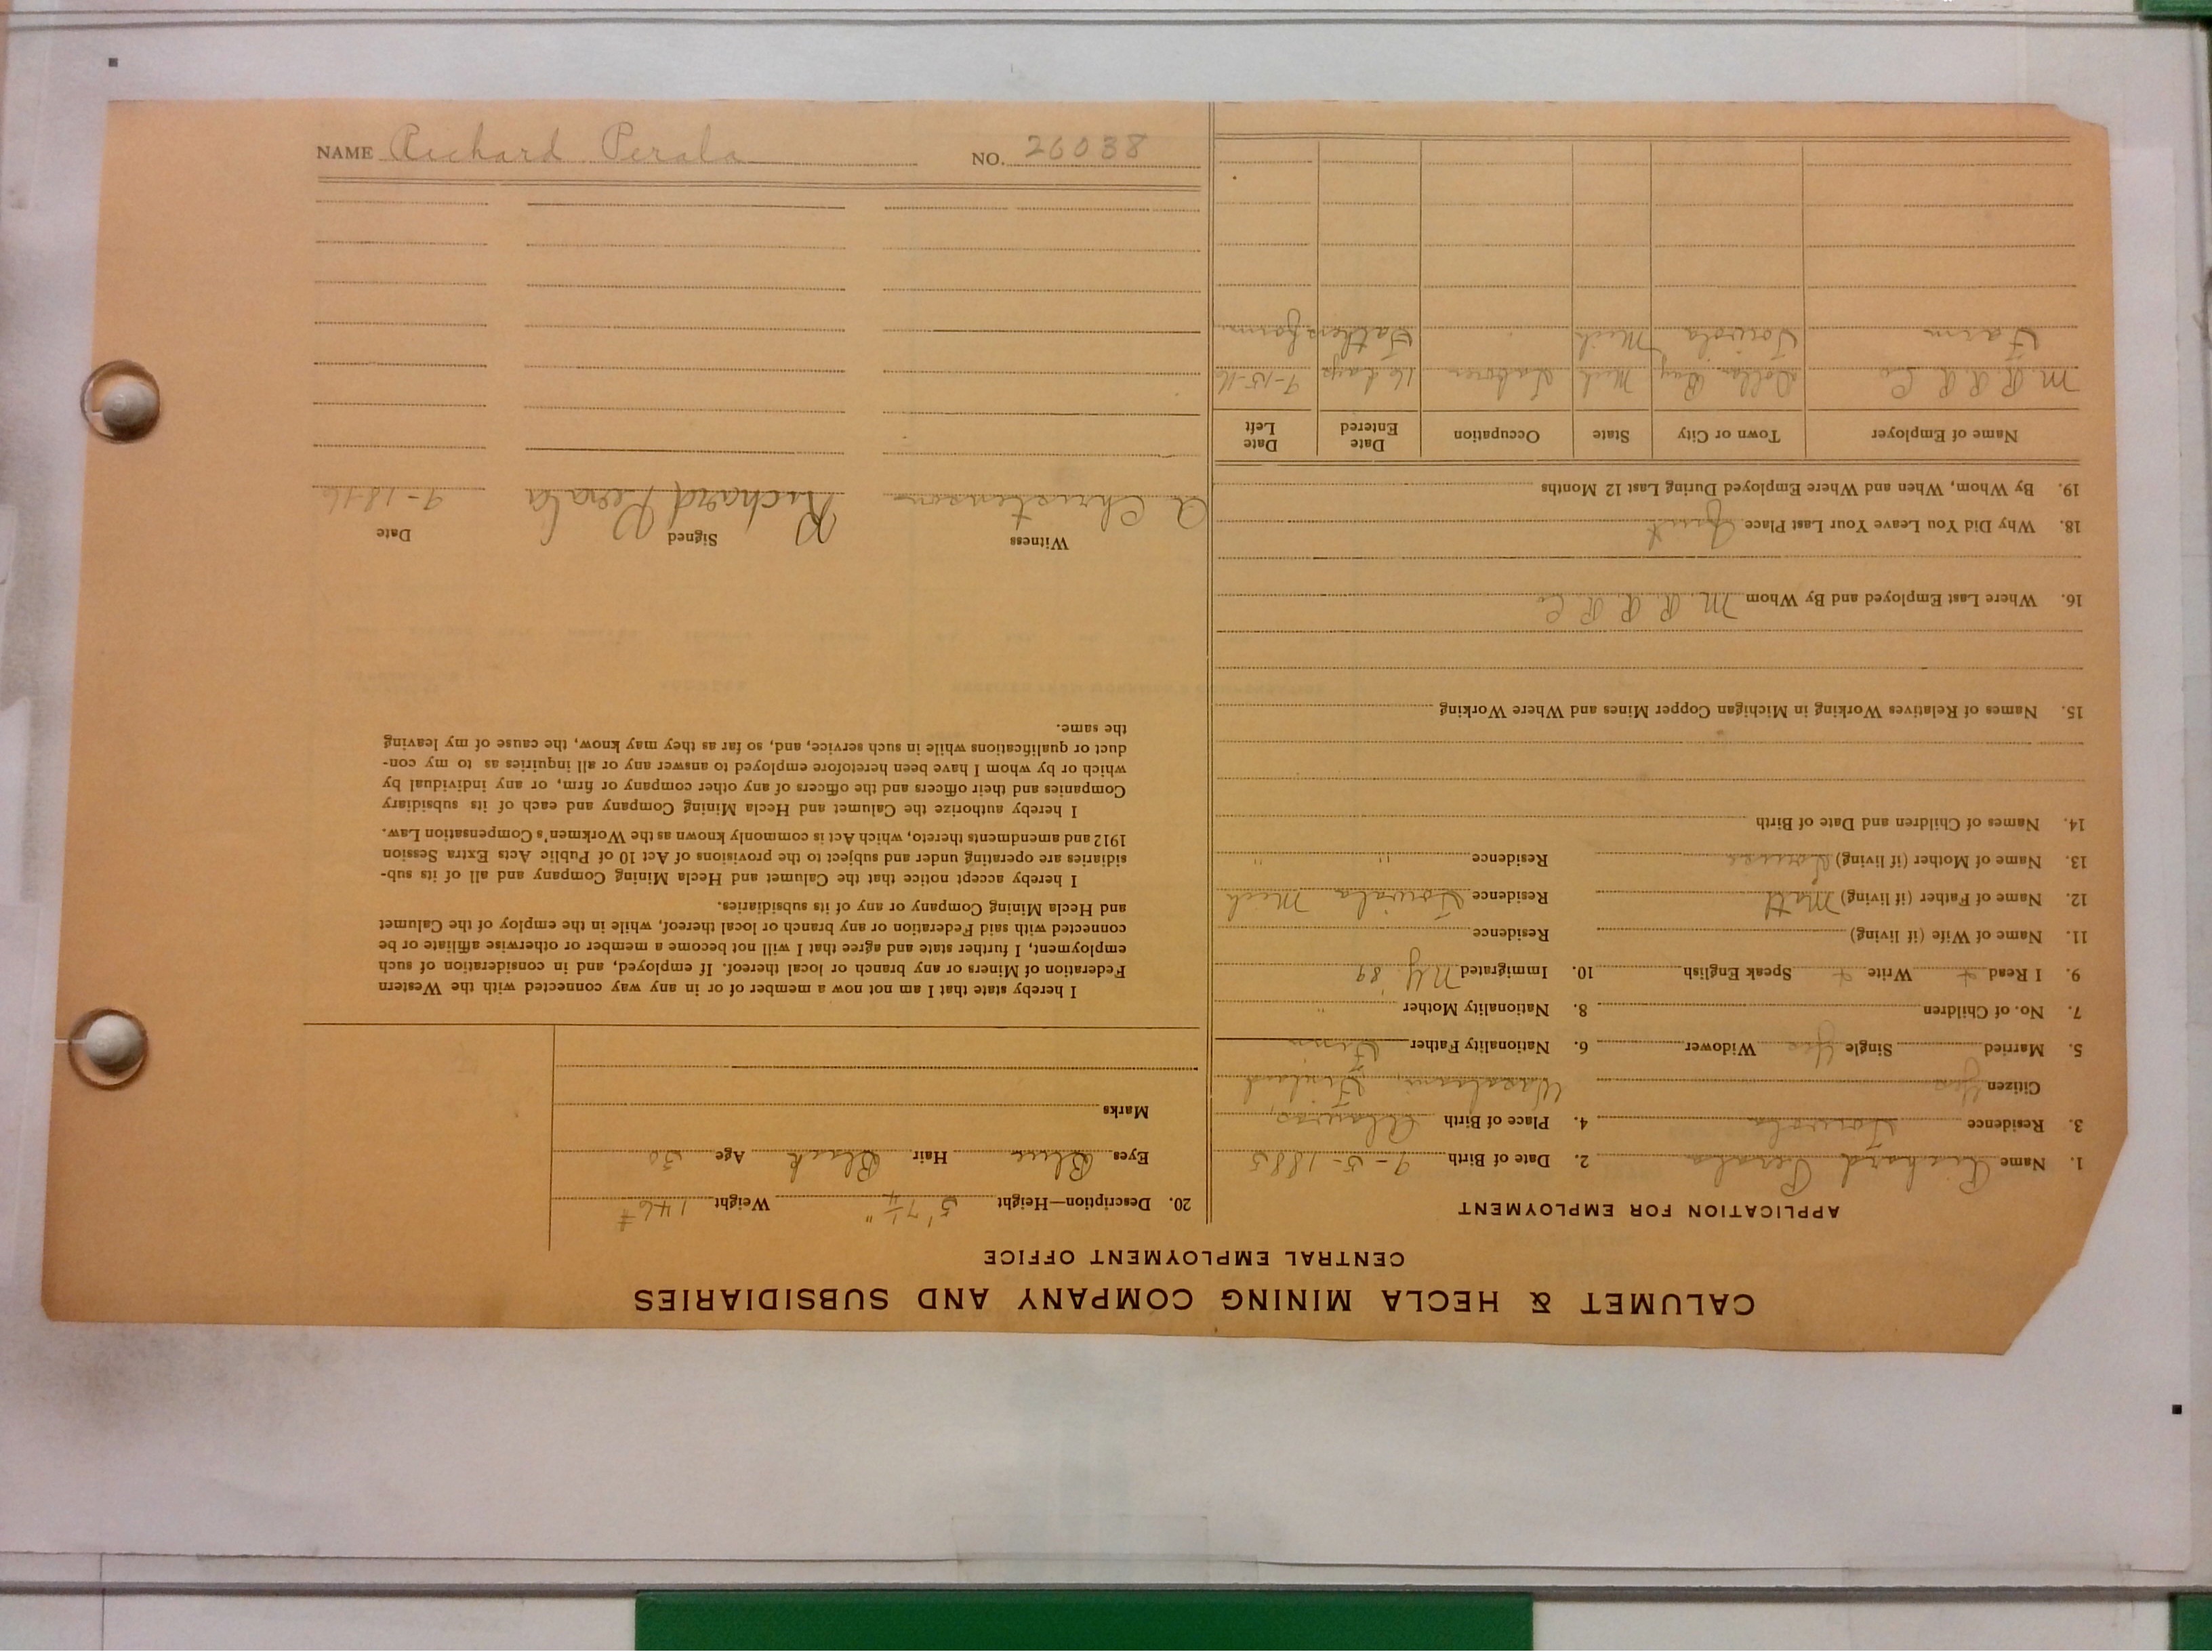 NAME Richard Perala NO. 26038
CALUMET & HECLA MINING COMPANY AND SUBSIDIARIES
CENTRAL EMPLOYMENT OFFICE
APPLICATION FOR EMPLOYMENT
1. Name Richard Perala 2. Date of Birth 9-5-1885
3. Residence Toivola 4. Place of Birth
Citizen Yes Finland
5. Married Single Yes Widower 6. Nationality Father Finn
7. No. of Children 8. Nationality Mother "
9. I Read Write Speak English 10. Immigrated N.Y. '89
11. Name of Wife (if living) Residence
12. Name of Father (if living) Matt Residence Toivola Mich
13. Name of Mother (if living) Louise Residence " "
14. Names of Children and Date of Birth
15. Names of Relatives Working in Michigan Copper Mines and Where Working
16. Where Last Employed and By Whom M. R. R. R. Co
18. Why Did You Leave Your Last Place Quit
19. By Whom, When and Where Employed During Last 12 Months
Name of Employer Town or City State Occupation Date Entered Date Left
M. R. R. R. Co Dollar Bay Mich Laborer 16 days 9-15-16
Farm Toivola Mich Fathers farm
20. Description—Height 5' 7 1/4" Weight 146#
Eyes Blue Hair Black Age 30
Marks
I hereby state that I am not now a member of or in any way connected with the Western
Federation of Miners or any branch or local thereof. If employed, and in consideration of such
employment, I further state and agree that I will not become a member or otherwise affiliate or be
connected with said Federation or any branch or local thereof, while in the employ of the Calumet
and Hecla Mining Company or any of its subsidiaries.
I hereby accept notice that the Calumet and Hecla Mining Company and all of its sub-
sidiaries are operating under and subject to the provisions of Act 10 of Public Acts Extra Session
1912 and amendments thereto, which Act is commonly known as the Workmen's Compensation Law.
I hereby authorize the Calumet and Hecla Mining Company and each of its subsidiary
Companies and their officers and the officers of any other company or firm, or any individual by
which or by whom I have been heretofore employed to answer any or all inquiries as to my con-
duct or qualifications while in such service, and, so far as they may know, the cause of my leaving
the same.
Witness Signed Date
A Christenson Richard Perala 9-18-16